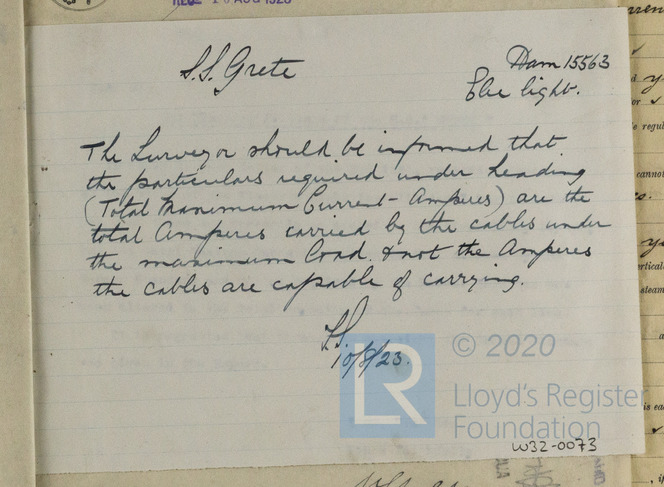 REC 10 AUG 1923
S.S. Grete
Ham 15563
Elec light.
The Surveyor should be informed that
the particulars required under heading
(Total Maximum Current - Amperes) are the
total Amperes carried by the cables under
the maximum load & not the Amperes
the cables are capable of carrying.
10/8/23.
© 2020
LR
Lloyd's Register
Foundation
W32-0073